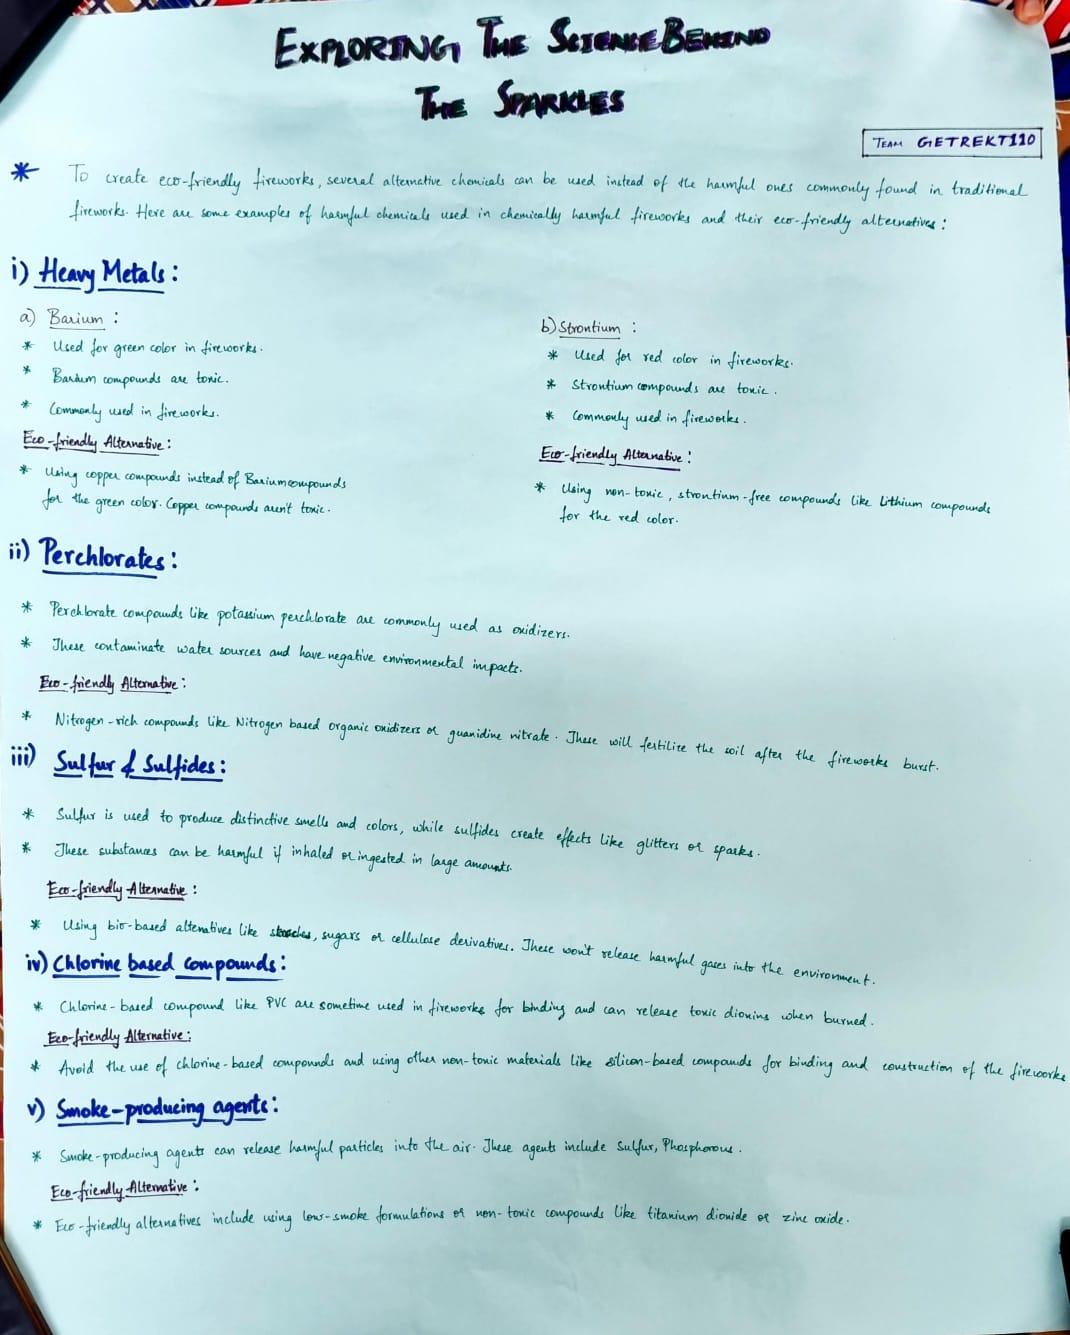 EXPLORING THE SCIENCE BEHIND
THE SPARKLES
TEAM GETREKT110
* To create eco-friendly fireworks, several alternative chemicals can be used instead of the harmful ones commonly found in traditional
fireworks. Here are some examples of harmful chemicals used in chemically harmful fireworks and their eco-friendly alternatives :
i) Heavy Metals :
a) Barium :
* Used for green color in fireworks.
* Barium compounds are toxic.
* Commonly used in fireworks.
Eco-friendly Alternative :
* Using copper compounds instead of Barium compounds
for the green color. Copper compounds aren't toxic.
b) Strontium :
* Used for red color in fireworks.
* Strontium compounds are toxic.
* Commonly used in fireworks.
Eco-friendly Alternative :
* Using non-toxic, strontium-free compounds like Lithium compounds
for the red color.
ii) Perchlorates :
* Perchlorate compounds like potassium perchlorate are commonly used as oxidizers.
* These contaminate water sources and have negative environmental impacts.
Eco-friendly Alternative :
* Nitrogen-rich compounds like Nitrogen based organic oxidizers or guanidine nitrate. These will fertilize the soil after the fireworks burst.
iii) Sulfur & Sulfides :
* Sulfur is used to produce distinctive smells and colors, while sulfides create effects like glitters or sparks.
* These substances can be harmful if inhaled or ingested in large amounts.
Eco-friendly Alternative :
* Using bio-based alternatives like starches, sugars or cellulose derivatives. These won't release harmful gases into the environment.
iv) Chlorine based compounds :
* Chlorine-based compound like PVC are sometime used in fireworks for binding and can release toxic dioxins when burned.
Eco-friendly Alternative :
* Avoid the use of chlorine-based compounds and using other non-toxic materials like silicon-based compounds for binding and construction of the fireworks
v) Smoke-producing agents :
* Smoke-producing agents can release harmful particles into the air. These agents include Sulfur, Phosphorous.
Eco-friendly Alternative :
* Eco-friendly alternatives include using low-smoke formulations or non-toxic compounds like titanium dioxide or zinc oxide.